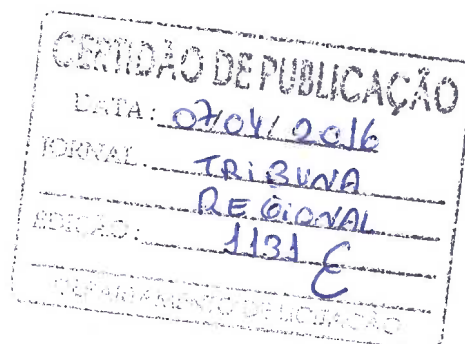 CERTIDÃO DE PUBLICAÇÃO
DATA: 07/04/2016
JORNAL: TRIBUNA
REGIONAL
EDIÇÃO: 1131
DEPARTAMENTO DE LICITAÇÃO